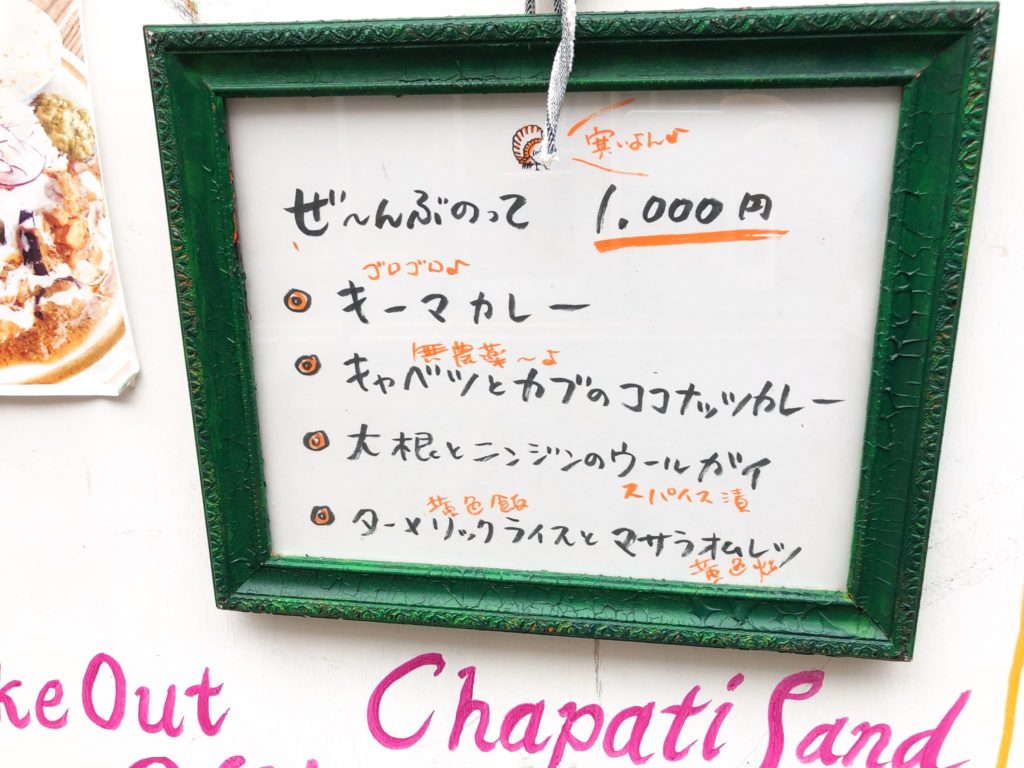 寒いよん♪
ぜ〜んぶのって 1.000円
ゴロゴロ♪
キーマカレー
無農薬〜♪
キャベツとカブのココナッツカレー
大根とニンジンのウールガイ
スパイス漬
黄色飯
ターメリックライスとマサラオムレツ
黄色
keOut
Chapati Sand